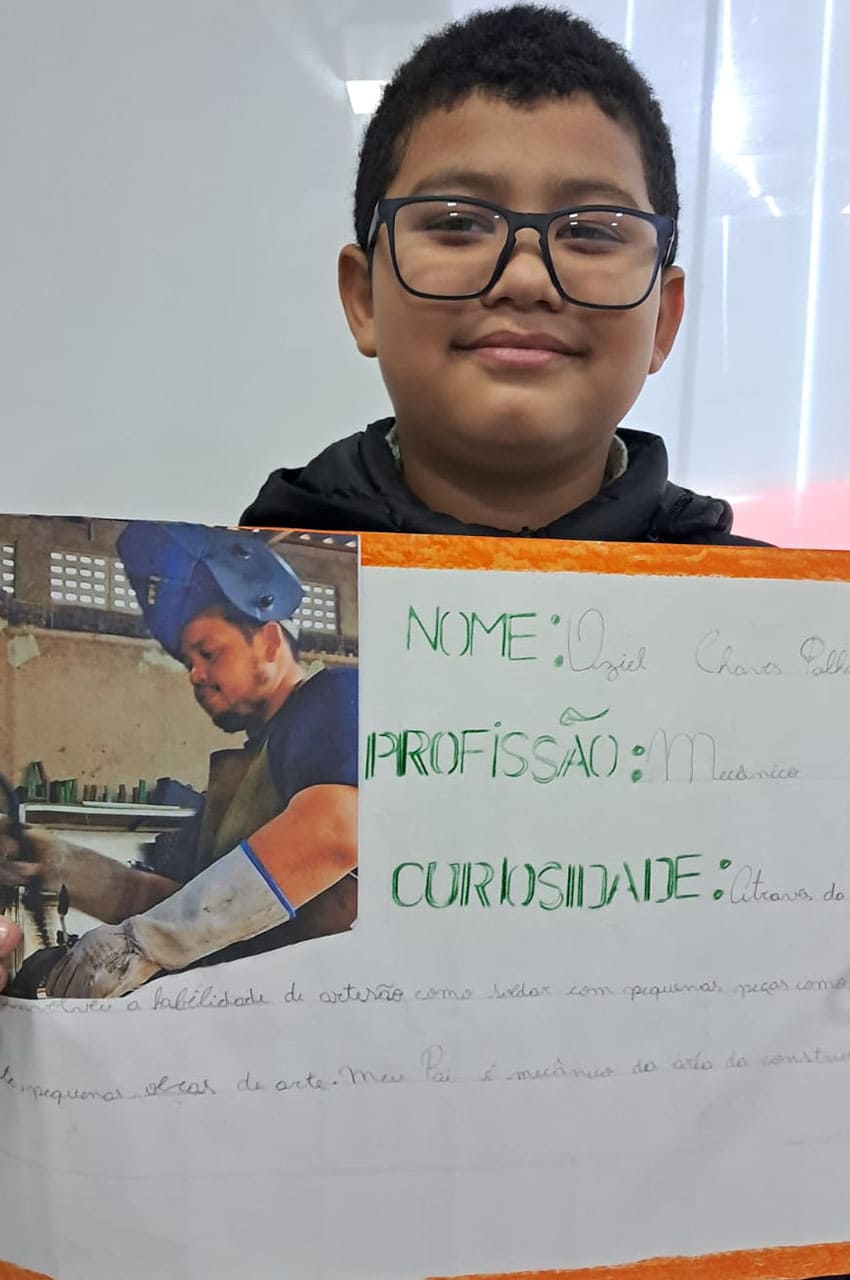 NOME: Uziel Chaves
PROFISSÃO: Mecânico
CURIOSIDADE: Atraves da
a habilidade de artesão como soldar com pequenas peças como
pequenas obras de arte. Meu Pai é mecânico da